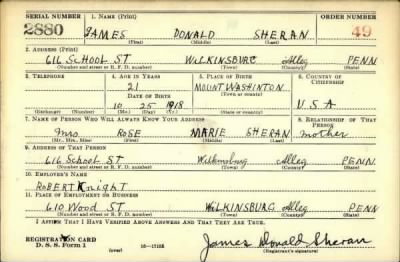 SERIAL NUMBER 1. NAME (Print) ORDER NUMBER
2880 JAMES DONALD SHERAN 49
(First) (Middle) (Last)
2. ADDRESS (Print)
616 SCHOOL ST WILKINSBURG Alleg PENN
(Number and street or R. F. D. number) (Town) (County) (State)
3. TELEPHONE 4. AGE IN YEARS 5. PLACE OF BIRTH 6. COUNTRY OF CITIZENSHIP
21 MOUNT WASHINTON
DATE OF BIRTH (Town or county)
10 25 1918 U S A
(Exchange) (Number) (Mo.) (Day) (Yr.) (State or country)
7. NAME OF PERSON WHO WILL ALWAYS KNOW YOUR ADDRESS 8. RELATIONSHIP OF THAT PERSON
Mrs ROSE MARIE SHERAN mother
(Mr., Mrs., Miss) (First) (Middle) (Last)
9. ADDRESS OF THAT PERSON
616 School ST Wilkinsburg Alleg PENN
(Number and street or R. F. D. number) (Town) (County) (State)
10. EMPLOYER'S NAME
ROBERT Knight
11. PLACE OF EMPLOYMENT OR BUSINESS
610 Wood ST WILKINSBURG Alleg PENN
(Number and street or R. F. D. number) (Town) (County) (State)
I AFFIRM THAT I HAVE VERIFIED ABOVE ANSWERS AND THAT THEY ARE TRUE.
REGISTRATION CARD
D. S. S. Form 1 (over) 16—17105 James Donald Sheran
(Registrant's signature)